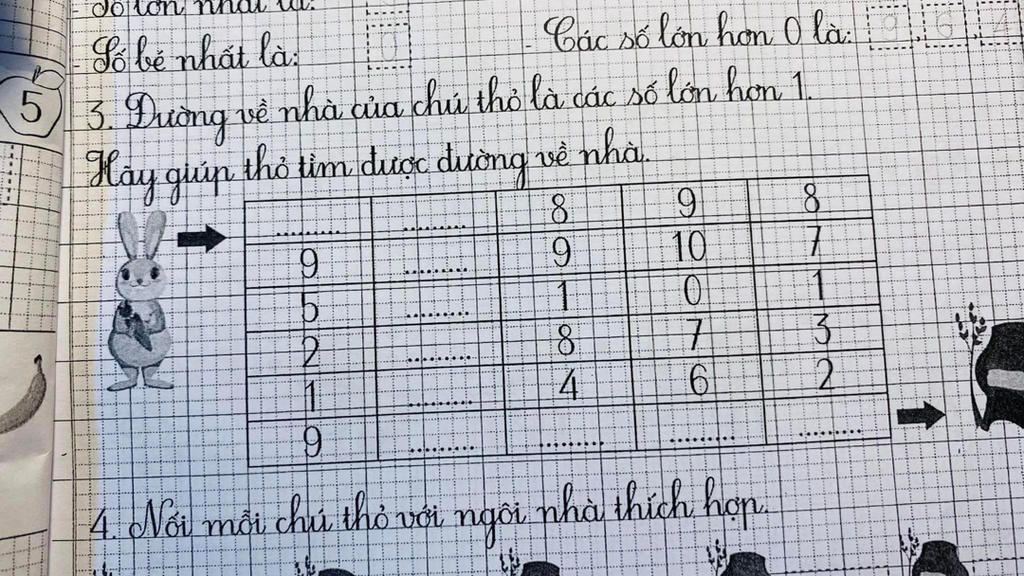 Số lớn nhất là:
- Số bé nhất là: 0
- Các số lớn hơn 0 là: 9, 6, 4
5
3. Đường về nhà của chú thỏ là các số lớn hơn 1.
Hãy giúp thỏ tìm được đường về nhà.
.......... .......... 8 9 8
9 .......... 9 10 7
5 .......... 1 0 1
2 .......... 8 7 3
1 .......... 4 6 2
9 .......... .......... .......... ..........
4. Nối mỗi chú thỏ với ngôi nhà thích hợp.